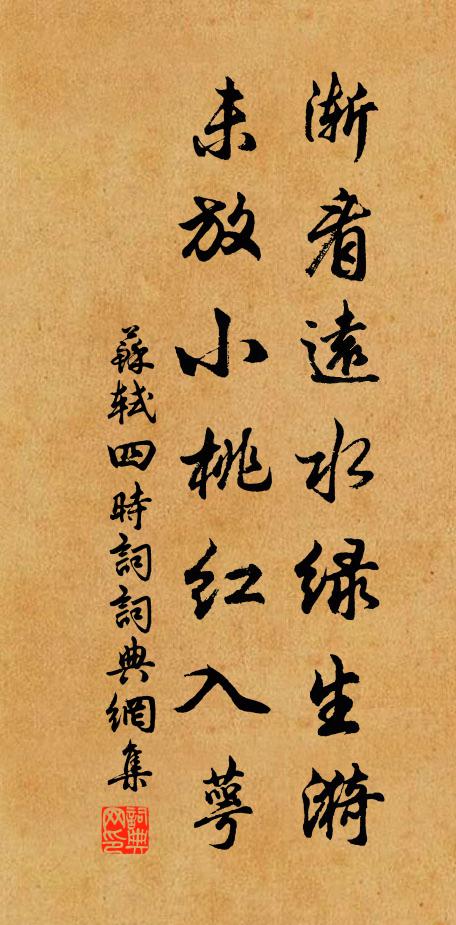 渐看遠水绿生漪
未放小桃红入萼
蘇軾四時詞詞典網集
詞典网印